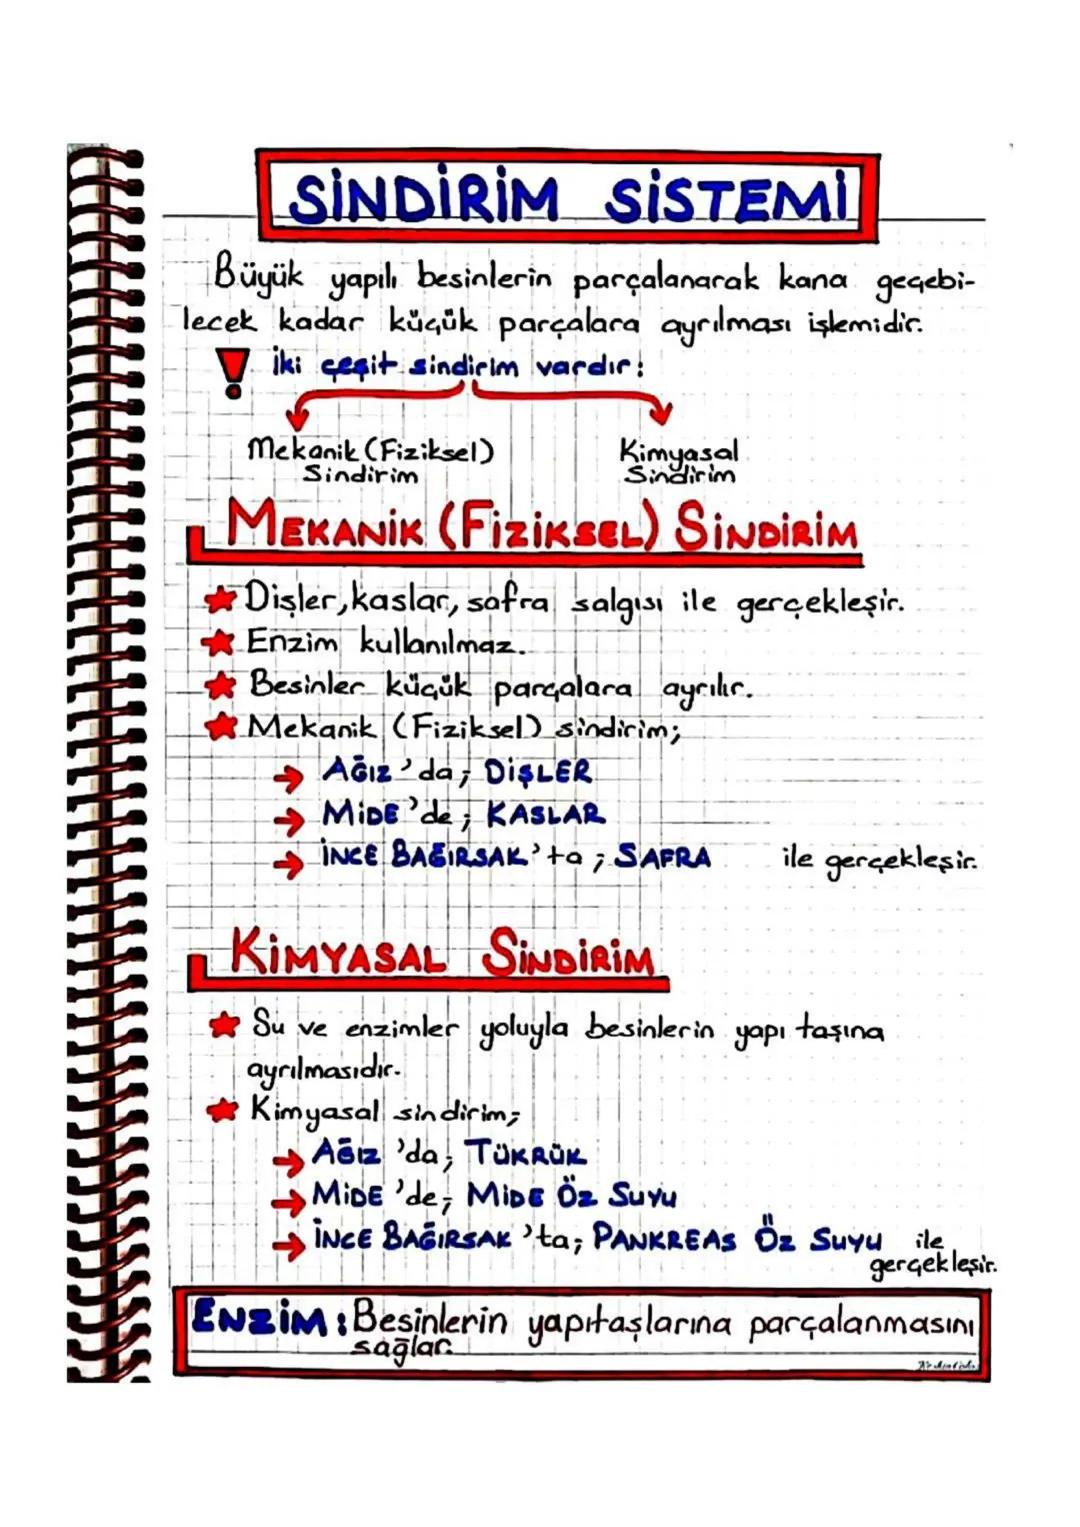 SİNDİRİM SİSTEMİ
Büyük yapılı besinlerin parçalanarak kana geçebi-
lecek kadar küçük parçalara ayrılması işlemidir.
! İki çeşit sindirim vardır:
Mekanik (Fiziksel)
Sindirim
Kimyasal
Sindirim
MEKANİK (FİZİKSEL) SİNDİRİM
Dişler, kaslar, safra salgısı ile gerçekleşir.
Enzim kullanılmaz.
Besinler küçük parçalara ayrılır.
Mekanik (Fiziksel) sindirim;
→ AĞIZ'da; DİŞLER
→ MİDE'de; KASLAR
→ İNCE BAĞIRSAK'ta; SAFRA ile gerçekleşir.
KİMYASAL SİNDİRİM
Su ve enzimler yoluyla besinlerin yapı taşına
ayrılmasıdır.
Kimyasal sindirim;
→ AĞIZ'da; TÜKRÜK
→ MİDE'de; MİDE ÖZ SUYU
→ İNCE BAĞIRSAK'ta; PANKREAS ÖZ SUYU ile
gerçekleşir.
ENZİM: Besinlerin yapıtaşlarına parçalanmasını
sağlar.